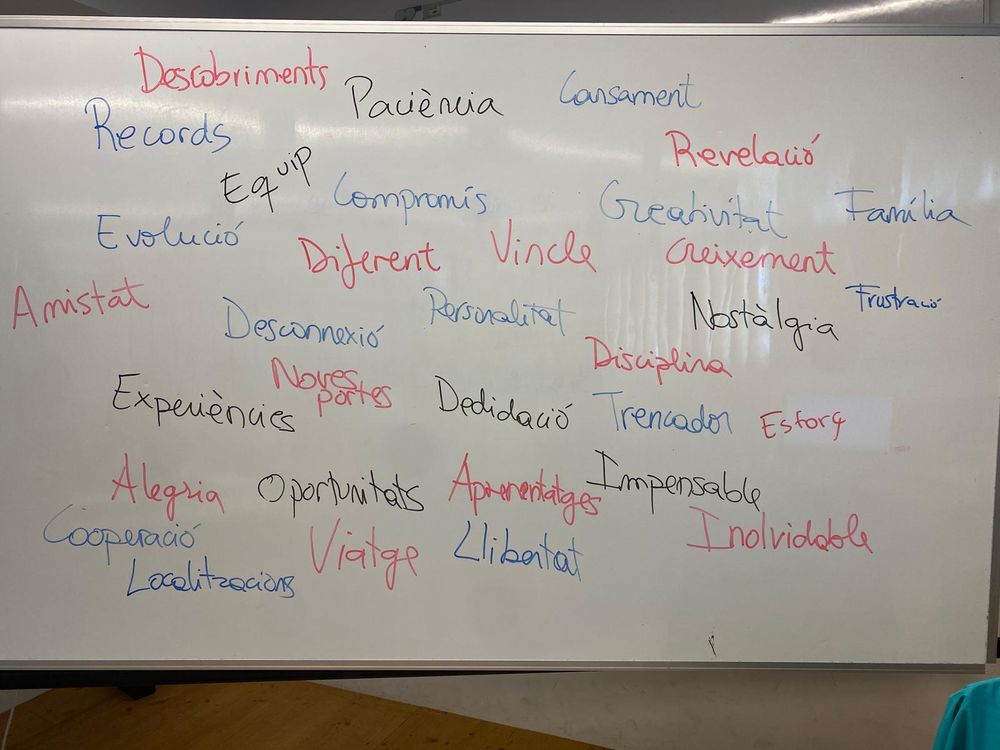 Descobriments
Paciència
Cansament
Records
Revelació
Equip
Compromís
Creativitat
Família
Evolució
Diferent
Vincle
Creixement
Amistat
Desconnexió
Personalitat
Nostàlgia
Frustració
Disciplina
Noves
portes
Experiències
Dedidació
Trencador
Esforç
Alegria
Oportunitats
Aprenentatges
Impensable
Cooperació
Viatge
Llibertat
Inolvidable
Localitzacions